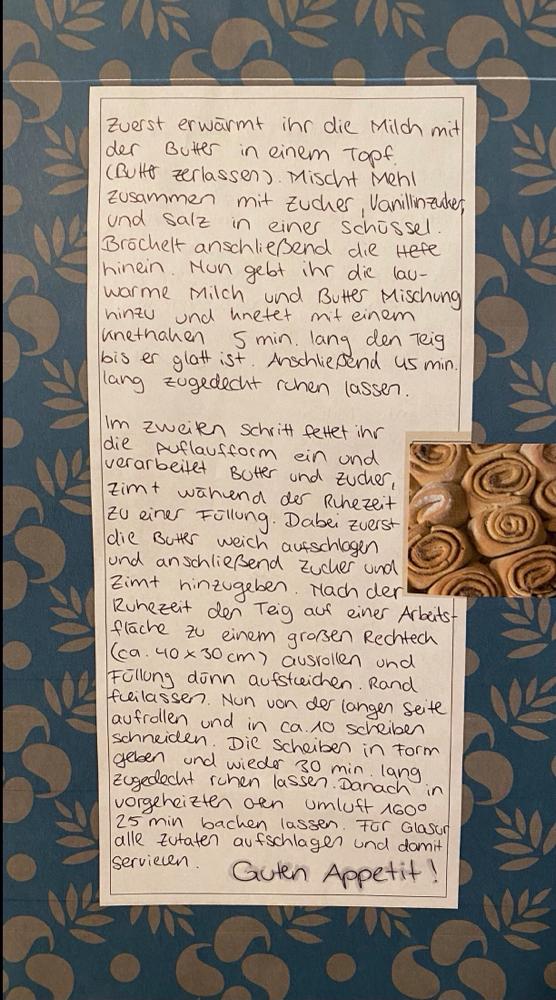 Zuerst erwärmt ihr die Milch mit
der Butter in einem Topf.
(Butter zerlassen). Mischt Mehl
zusammen mit Zucker, Vanillinzucker,
und Salz in einer Schüssel.
Bröckelt anschließend die Hefe
hinein. Nun gebt ihr die lau-
warme Milch und Butter Mischung
hinzu und knetet mit einem
Knethaken 5 min. lang den Teig
bis er glatt ist. Anschließend 45 min.
lang zugedeckt ruhen lassen.
Im zweiten Schritt fettet ihr
die Auflaufform ein und
verarbeitet Butter und Zucker,
Zimt während der Ruhezeit
zu einer Füllung. Dabei zuerst
die Butter weich aufschlagen
und anschließend Zucker und
Zimt hinzugeben. Nach der
Ruhezeit den Teig auf einer Arbeits-
fläche zu einem großen Rechteck
(ca. 40 x 30 cm) ausrollen und
Füllung dünn aufstreichen. Rand
freilassen. Nun von der langen Seite
aufrollen und in ca. 10 scheiben
schneiden. Die Scheiben in Form
geben und wieder 30 min. lang
zugedeckt ruhen lassen. Danach in
vorgeheizten Ofen Umluft 160°
25 min backen lassen. Für Glasur
alle Zutaten aufschlagen und damit
servieren.
Guten Appetit!